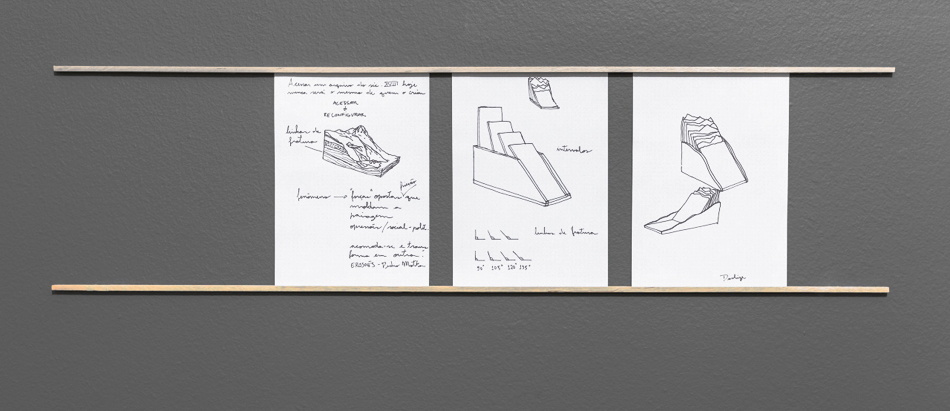 Acessar um arquivo do séc. XVIII hoje
nunca será o mesmo de quem o criou
ACESSAR
+
RECONFIGURAR
linhas de
fratura
fenômeno → "forças" opostas que
moldam a
paisagem
opressão/social-polit
acomoda-se e trans
forma em outra.
EROSÕES - Pedro
intervalos
linhas de fratura
90° 105° 120° 135°